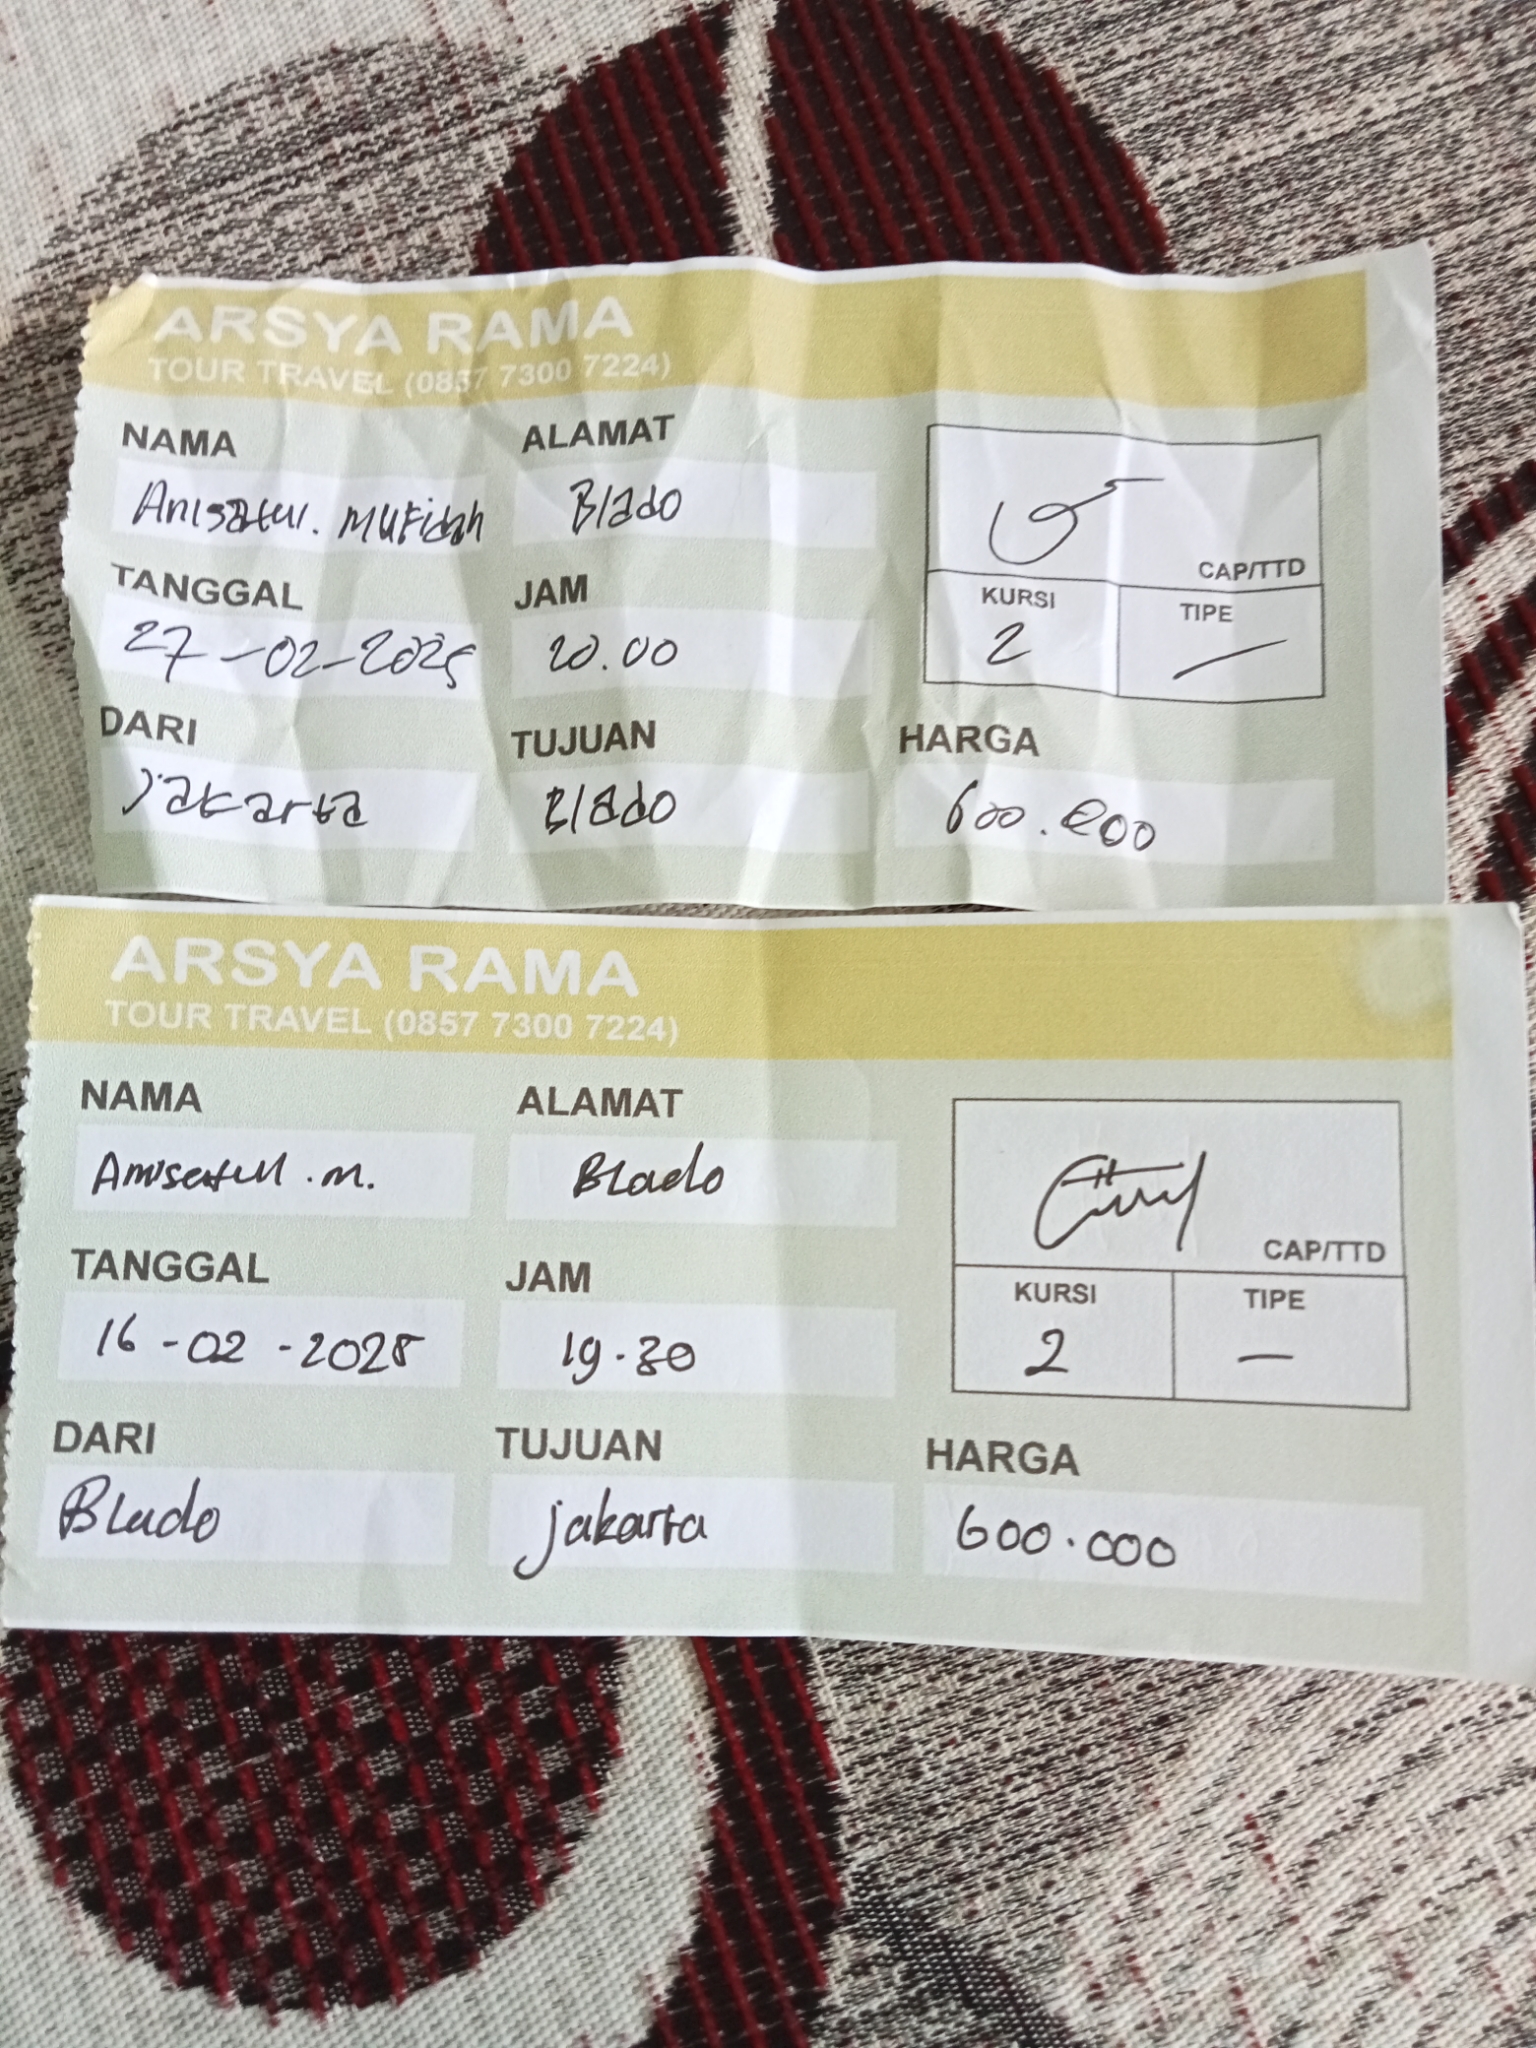 ARSYA RAMA
TOUR TRAVEL (0857 7300 7224)
NAMA ALAMAT
Anisatul. Mufidah Blado
CAP/TTD
TANGGAL JAM KURSI TIPE
27-02-2025 20.00 2 —
DARI TUJUAN HARGA
Jakarta Blado 600.000
ARSYA RAMA
TOUR TRAVEL (0857 7300 7224)
NAMA ALAMAT
Anisatul.m. Blado
CAP/TTD
TANGGAL JAM KURSI TIPE
16-02-2025 19.30 2 —
DARI TUJUAN HARGA
Blado jakarta 600.000